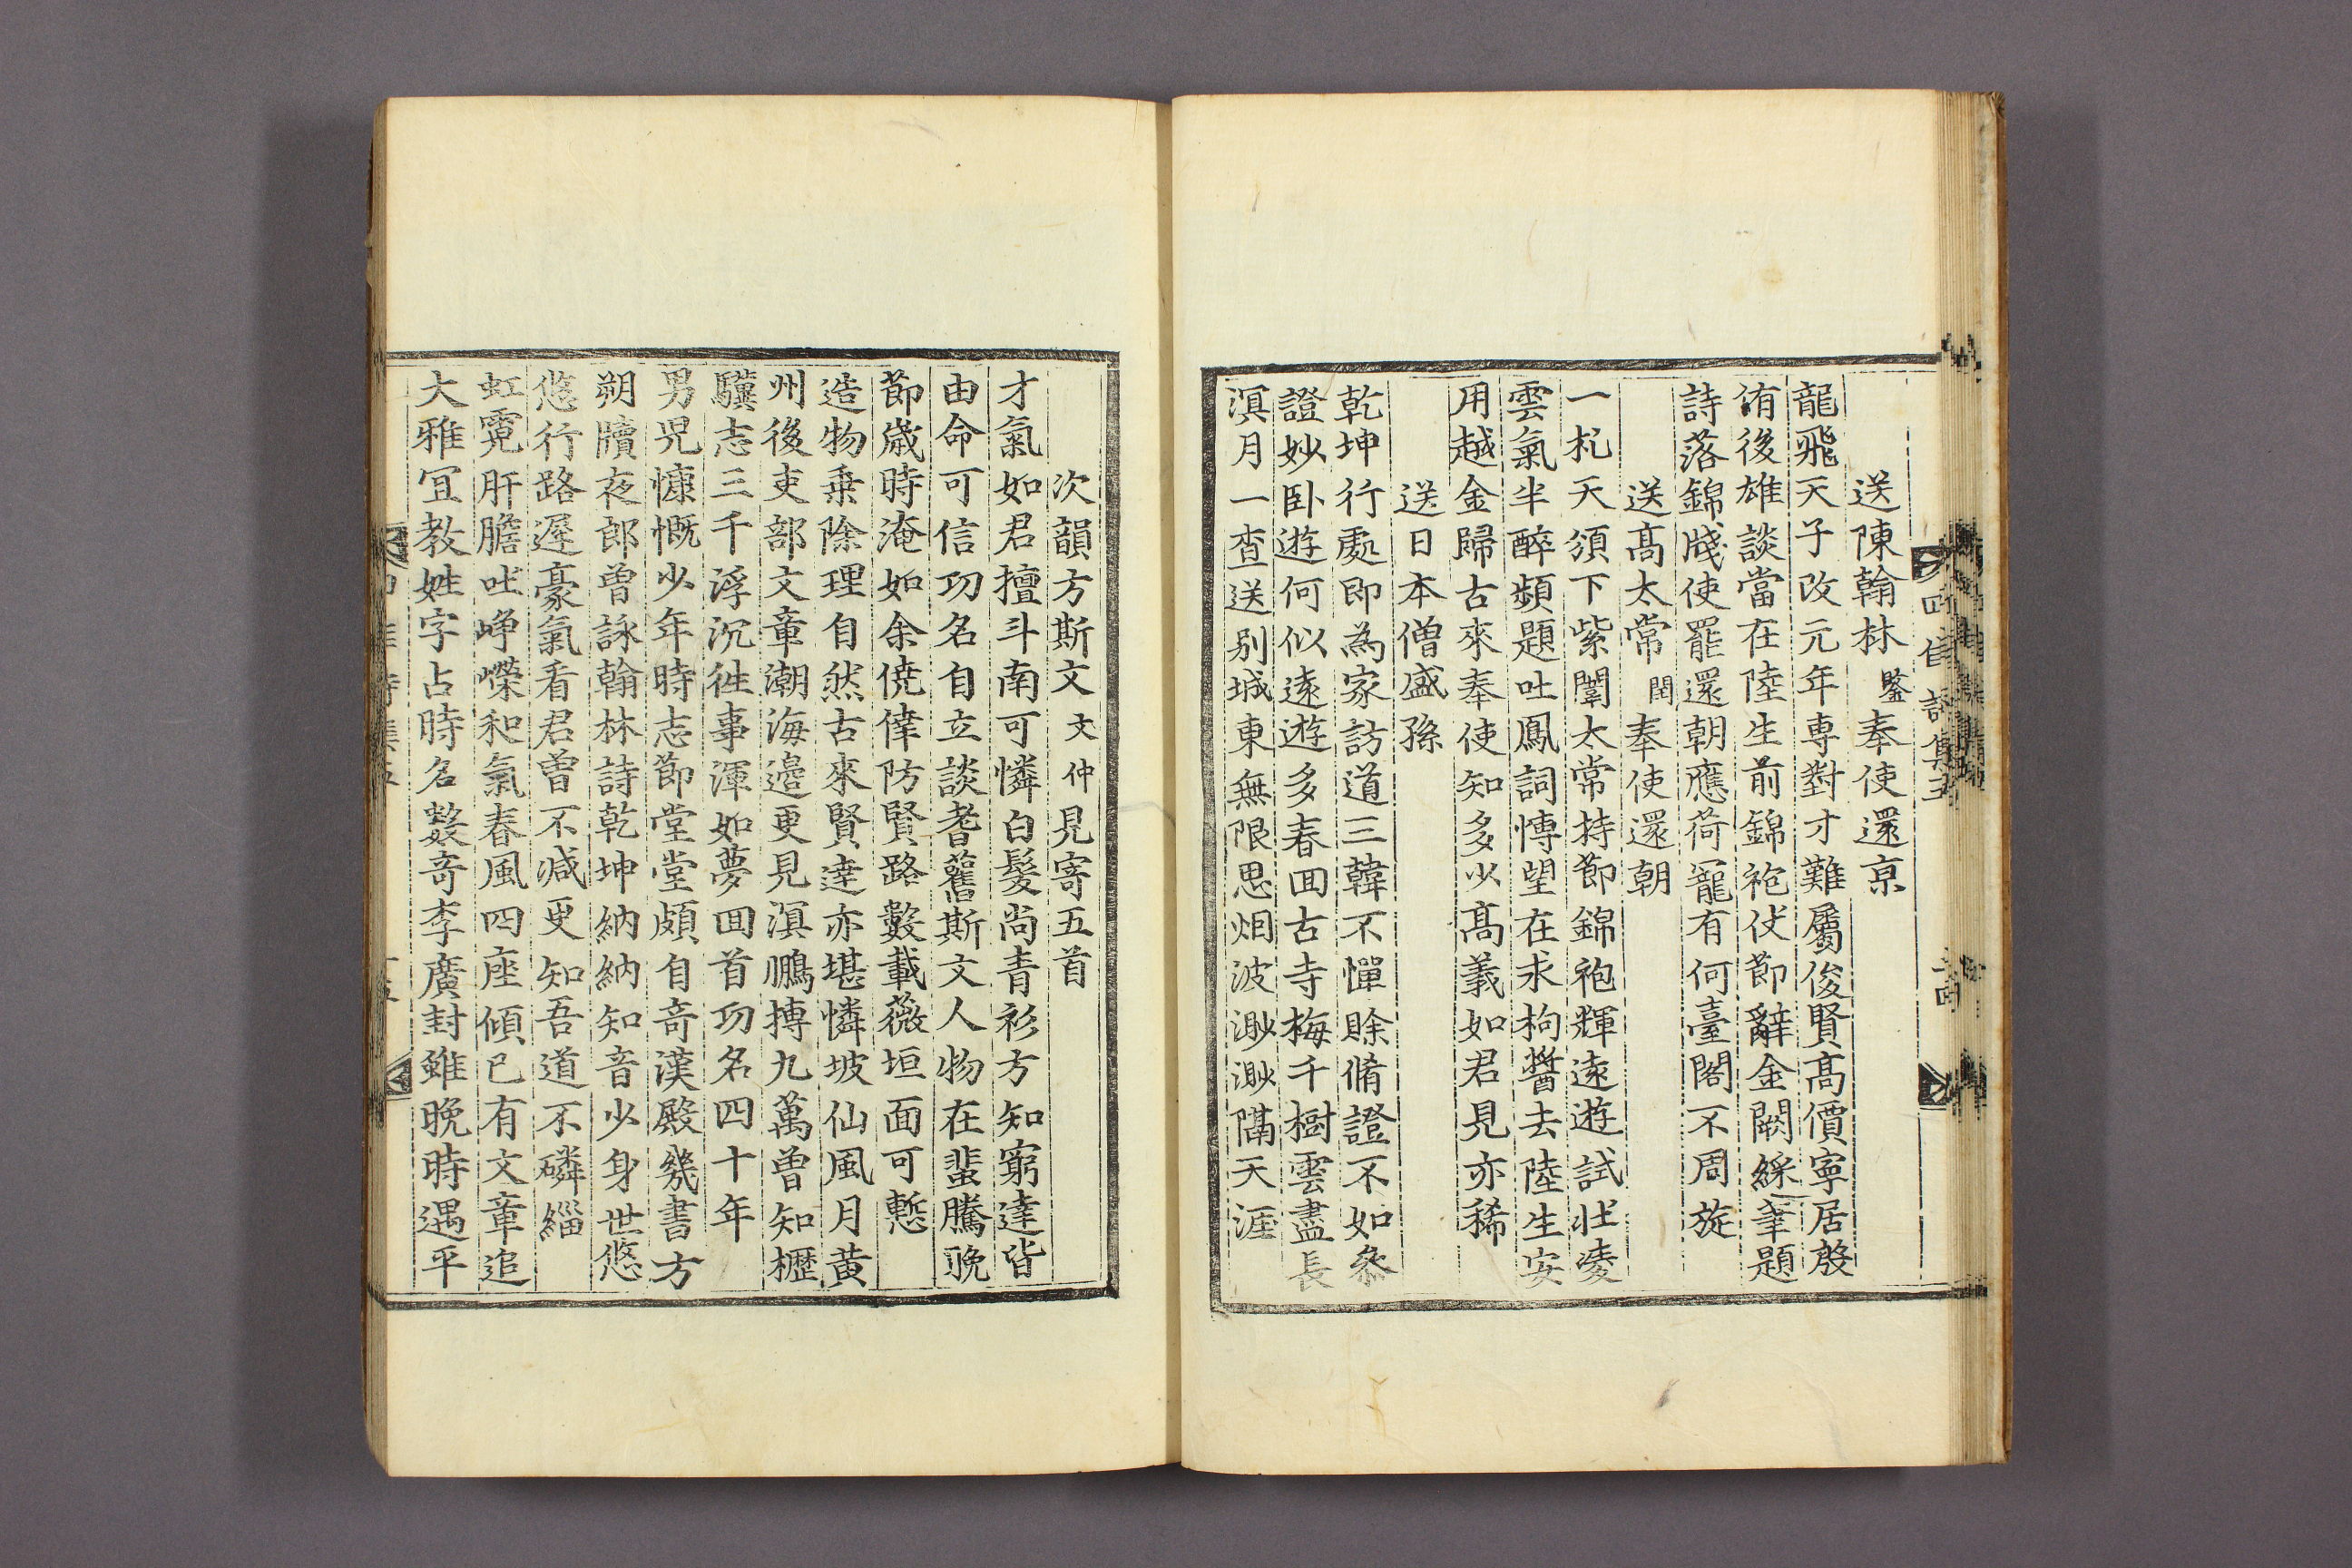 送陳翰林鑒奉使還京
龍飛天子改元年専對才難屬俊賢高價寧居殷
侑後雄談當在陸生前錦袍伏節辭金闕綵筆題
詩落錦牋使罷還朝應荷寵有何臺閣不周旋
送高太常閏奉使還朝
一札天頒下紫闥太常持節錦袍輝遠遊試壯凌
雲氣半醉頻題吐鳳詞愽望在求枸醬去陸生安
用越金歸古來奉使知多少高義如君見亦稀
送日本僧盛孫
乾坤行處即為家訪道三韓不憚賒脩證不如叅
證妙卧遊何似遠遊多春回古寺梅千樹雲盡長
溟月一査送别城東無限思烟波渺渺隔天涯
次韻方斯文文仲見寄五首
才氣如君擅斗南可憐白髮尚青衫方知窮達皆
由命可信功名自立談耆舊斯文人物在蜚騰晩
節歲時淹如余僥倖防賢路數載薇垣面可慙
造物乗除理自然古來賢達亦堪憐坡仙風月黄
州後吏部文章潮海邉更見溟鵬搏九萬曽知櫪
驥志三千浮沉徃事渾如夢回首功名四十年
男児慷慨少年時志節堂堂頗自竒漢殿幾書方
朔牘夜郎曽詠翰林詩乾坤納納知音少身世悠
悠行路遅豪氣看君曽不减更知吾道不磷緇
虹霓肝膽吐崢嶸和氣春風四座傾已有文章追
大雅冝教姓字占時名數竒李廣封雖晩時遇平